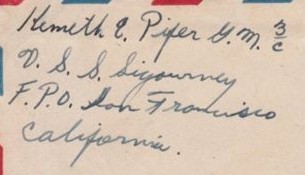 Kenneth E. Pifer G.M. 3/c
U. S. S. Sigourney
F. P. O. San Francisco
California.